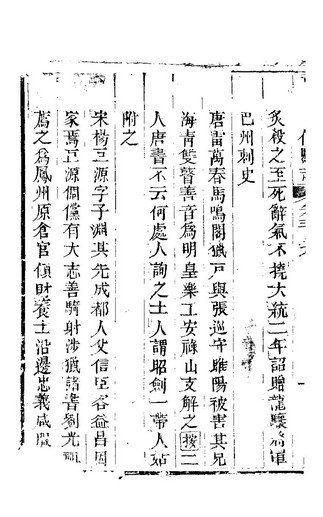 炙殺之至死辭氣不撓大統二年詔贈龍驤將軍
巴州刺史
唐雷萬春馬鳴閣獵戸與張巡守睢陽被害其兄
海青雙瞽善音為明皇樂工安祿山支解之按二
人唐書不云何處人詢之土人謂昭劍一帶人姑
附之
宋楊巨源字子淵其先成都人父信臣客益昌因
家焉巨源倜儻有大志善騎射涉獵諸書劉光祖
薦之為鳳州原倉官傾財養士沿邊忠義咸服